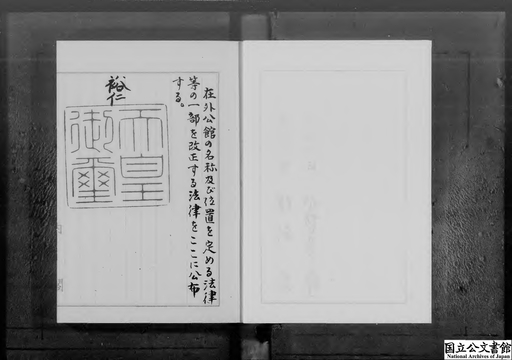 在外公館の名称及び位置を定める法律
等の一部を改正する法律をここに公布
する。
裕仁
天皇
御璽
国立公文書館
National Archives of Japan